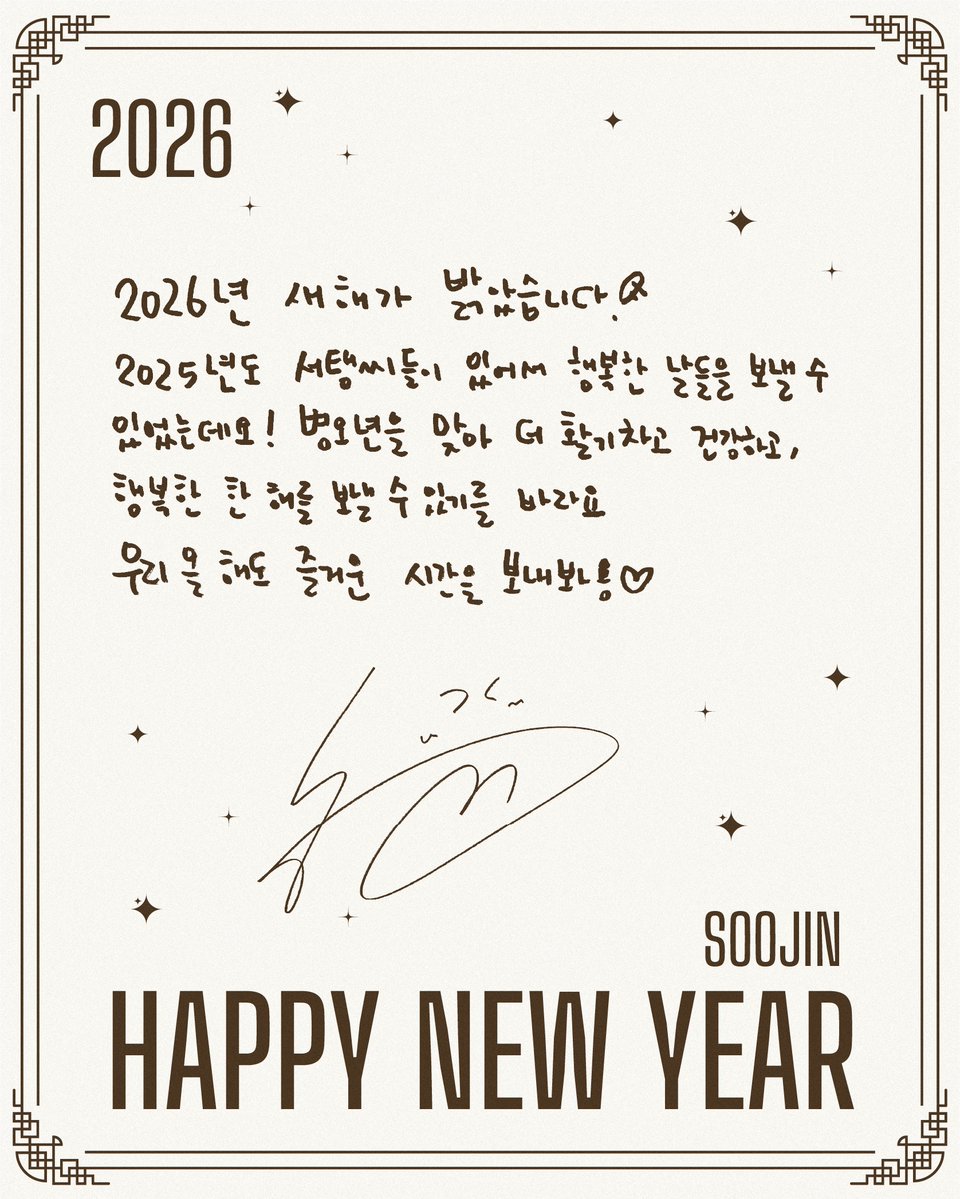 2026
2026년 새해가 밝았습니다!
2025년도 서탬씨들이 있어서 행복한 날들을 보낼 수
있었는데요! 병오년을 맞아 더 활기차고 건강하고,
행복한 한 해를 보낼 수 있기를 바라요
우리 올 해도 즐거운 시간을 보내봐용♡
SOOJIN
HAPPY NEW YEAR